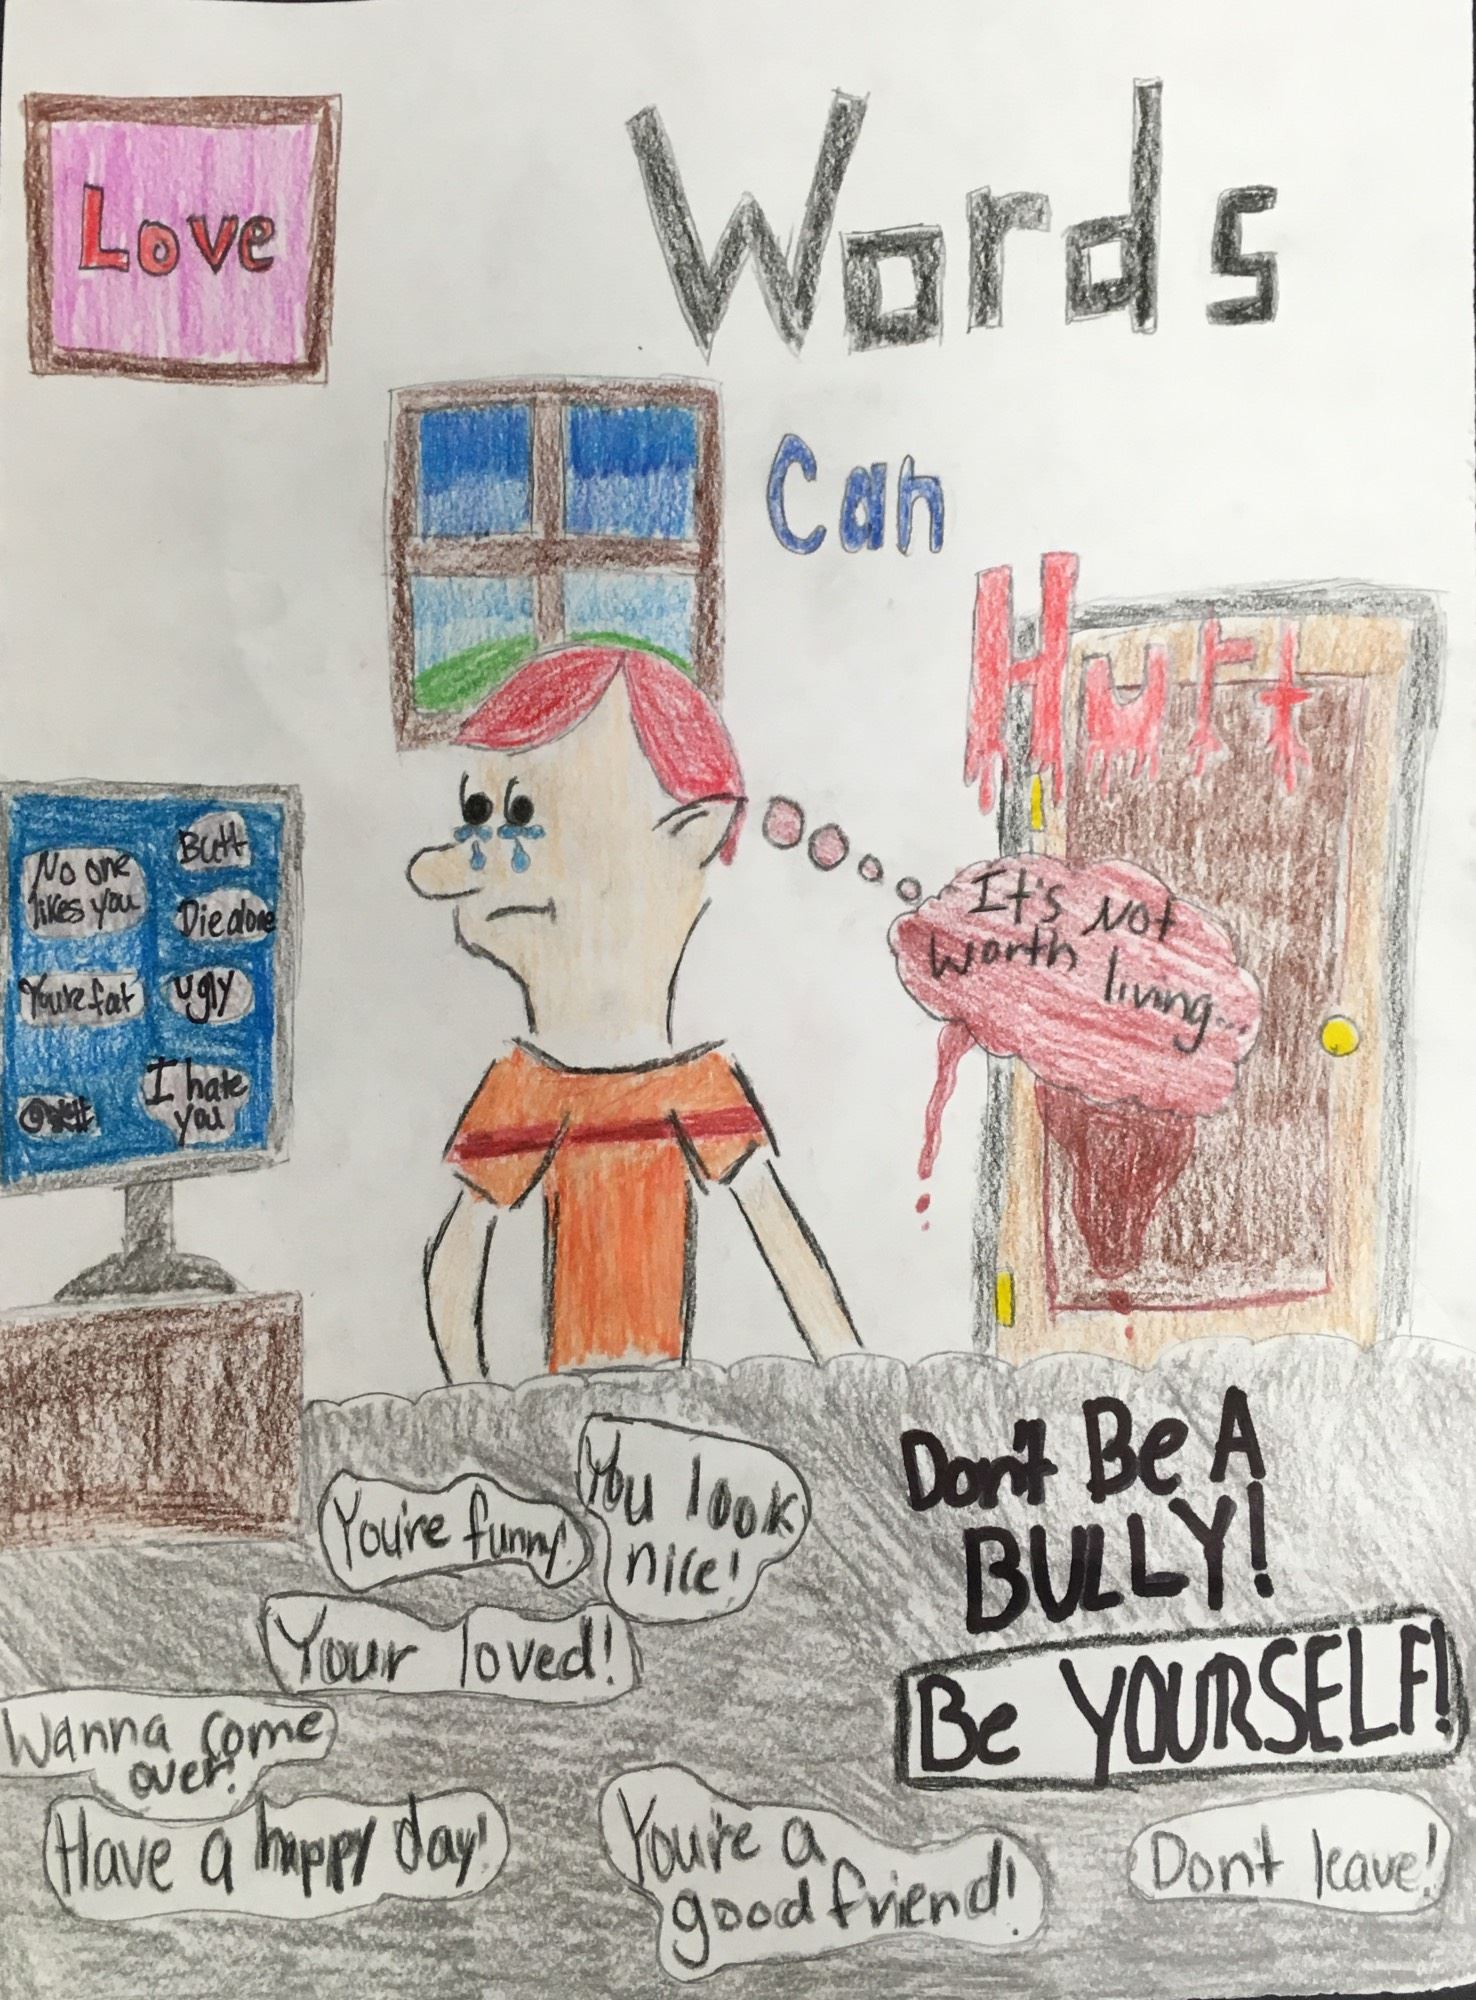 Love
Words
Can
Hurt
No one
likes you
Butt
Die alone
You're fat
ugly
I hate
you
It's Not
worth living...
Don't Be A
BULLY!
Be YOURSELF!
You're funny!
You look
nice!
Your loved!
Wanna come
over!
Have a happy day!
You're a
good friend!
Don't leave!